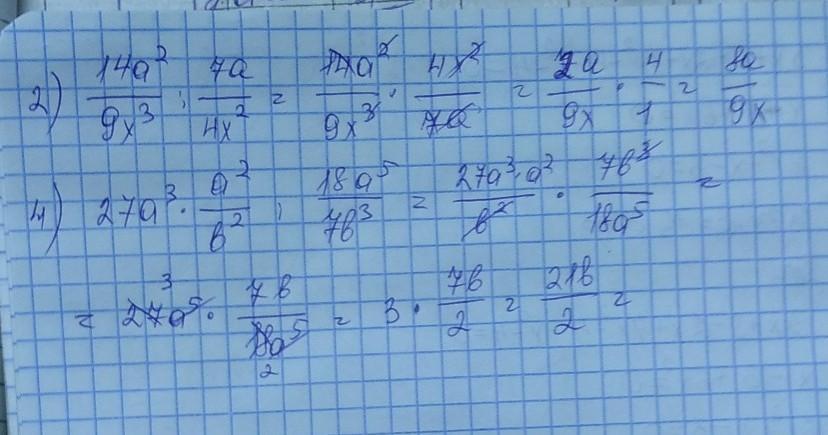 2) 14a²/9x³ : 7a/4x² = 14a²/9x³ · 4x²/7a = 2a/9x · 4/1 = 8a/9x
4) 27a³ · a²/b² : 18a⁵/7b³ = 27a³·a²/b² · 7b³/18a⁵ =
= 27a⁵ 3 · 7b/18a⁵ 2 = 3 · 7b/2 = 21b/2 =